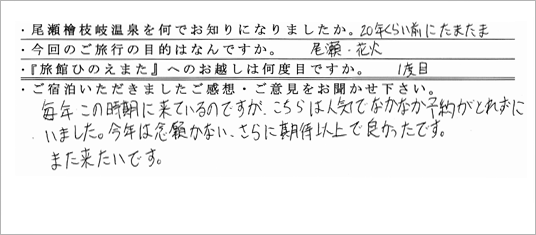 ・尾瀬檜枝岐温泉を何でお知りになりましたか。20年くらい前にたまたま
・今回のご旅行の目的はなんですか。 尾瀬・花火
・『旅館ひのえまた』へのお越しは何度目ですか。 1度目
・ご宿泊いただきましたご感想・ご意見をお聞かせ下さい。
毎年この時期に来ているのですが、こちらは人気でなかなか予約がとれずに
いました。今年は念願かない、さらに期待以上で良かったです。
また来たいです。